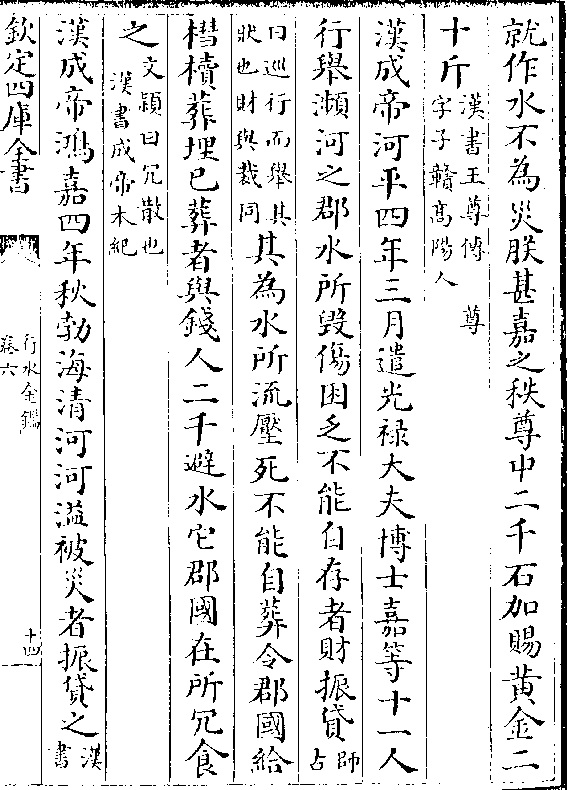 就作水不為災朕甚嘉之秩尊中二千石加賜黃金二
十斤漢書王尊傳　尊字子贛髙陽人
漢成帝河平四年三月遣光禄大夫博士嘉等十一人
行舉瀕河之郡水所毁傷困乏不能自存者財振貸師古
曰巡行而舉其狀也財與裁同其為水所流壓死不能自葬令郡國給
槥櫝葬埋已葬者與錢人二千避水它郡國在所冗食
之文頴曰冗散也漢書成帝本紀
漢成帝鴻嘉四年秋勃海清河河溢被災者振貸之漢書
欽定四庫全書
行水金鑑
卷六
十四